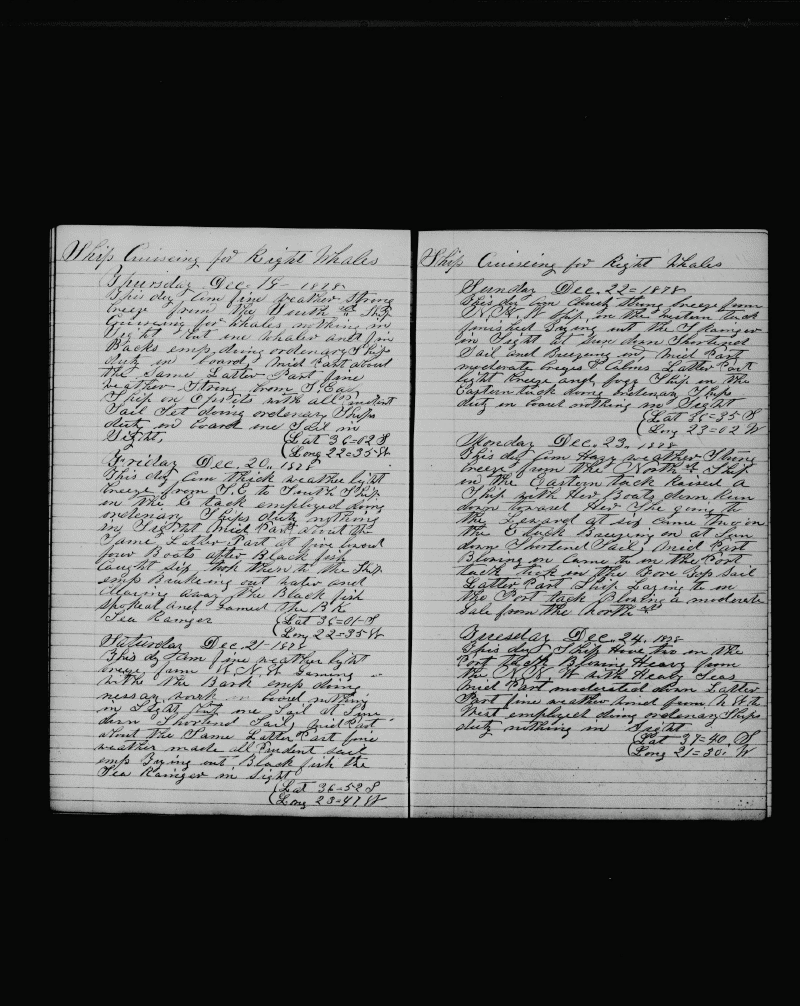 Ship Cruiseing for Right Whales
Thursday Dec. 19 - 1878
This day Com fine weather Strong
breeze from the South Ship
Cruiseing for whales nothing in
Sight but one whaler and fin
Backs emp, doing ordenary Ship
duty on board, Mid Part about
the Same Latter Part fine
weather Strong from S. Ea
Ship on Ea tack with all Prudent
Sail Set doing ordenary Ships
duty on board one Sail in
Sight, (Lat 36=02 S
(Long 22=35 W
Friday Dec. 20, 1878
This day Com thick weather light
breeze from S.E to South Ship
on the E tack employed doing
ordenary Ships duty nothing
in Sight Mid Part about the
Same Latter Part at five lowerd
four Boats after Black fish
Caught six, took them to the Ship
emp Breaking out water and
Clearing away the Black fish
Spokeal and Gamed the BK
Sea Ranger (Lat 36=01 S
(Long 22=35 W
Saturday Dec. 21 - 1878
This day Com fine weather light
breeze from W.N.W Gaming
with the Bark emp doing
nessary work on board nothing
in Sight but one Sail at Sun
down Shortend Sail, Mid Part
about the Same Latter Part fine
weather made all Prudent Sail
emp Bying out Black fish the
Sea Ranger in Sight
(Lat 36=52 S
(Long 23=47 W
Ship Cruiseing for Right Whales
Sunday Dec. 22 = 1878
This day Com Much thing breeze from
N.N.W Ship on the western tack
finished Bying out the S Ranger
in Sight at Sun down Shortend
Sail and Breezeing on, Mid Part
moderate breezes & Calms Latter Part
light breeze and fogg Ship on the
Eastern tack doing ordenary Ships
duty on board nothing in Sight
(Lat 36=35 S
(Long 23=02 W
Monday Dec. 23, 1878
This day Com Hazy weather Strong
breeze from the North Ship
on the Eastern tack Raised a
Ship with Her Boats down Run
down toward Her She going to
the Leward at six Came too on
the E tack Breezeing on at Sun
down Shortend Sail, Mid Part
Blowing on Came to on the Port
tack tuck in the Fore Top Sail
Latter Part Ship Laying to on
the Port tack Blowing a moderate
Gale from the North
Tuesday Dec. 24, 1878
This day Ship Hove too on the
Port tack Blowing Heavy from
the N.N.W with Heavy Seas
Mid Part moderated down Latter
Part fine weather wind from N to the
West employed doing ordenary Ships
duty nothing in Sight
(Lat 37=40, S
(Long 21=30, W